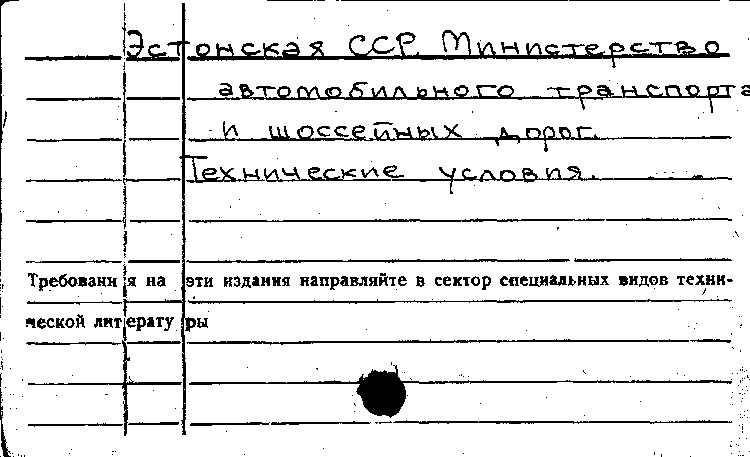 Эстонская ССР. Министерство
автомобильного транспорта
и шоссейных дорог.
Технические условия.
Требования на эти издания направляйте в сектор специальных видов техни-
ческой литературы